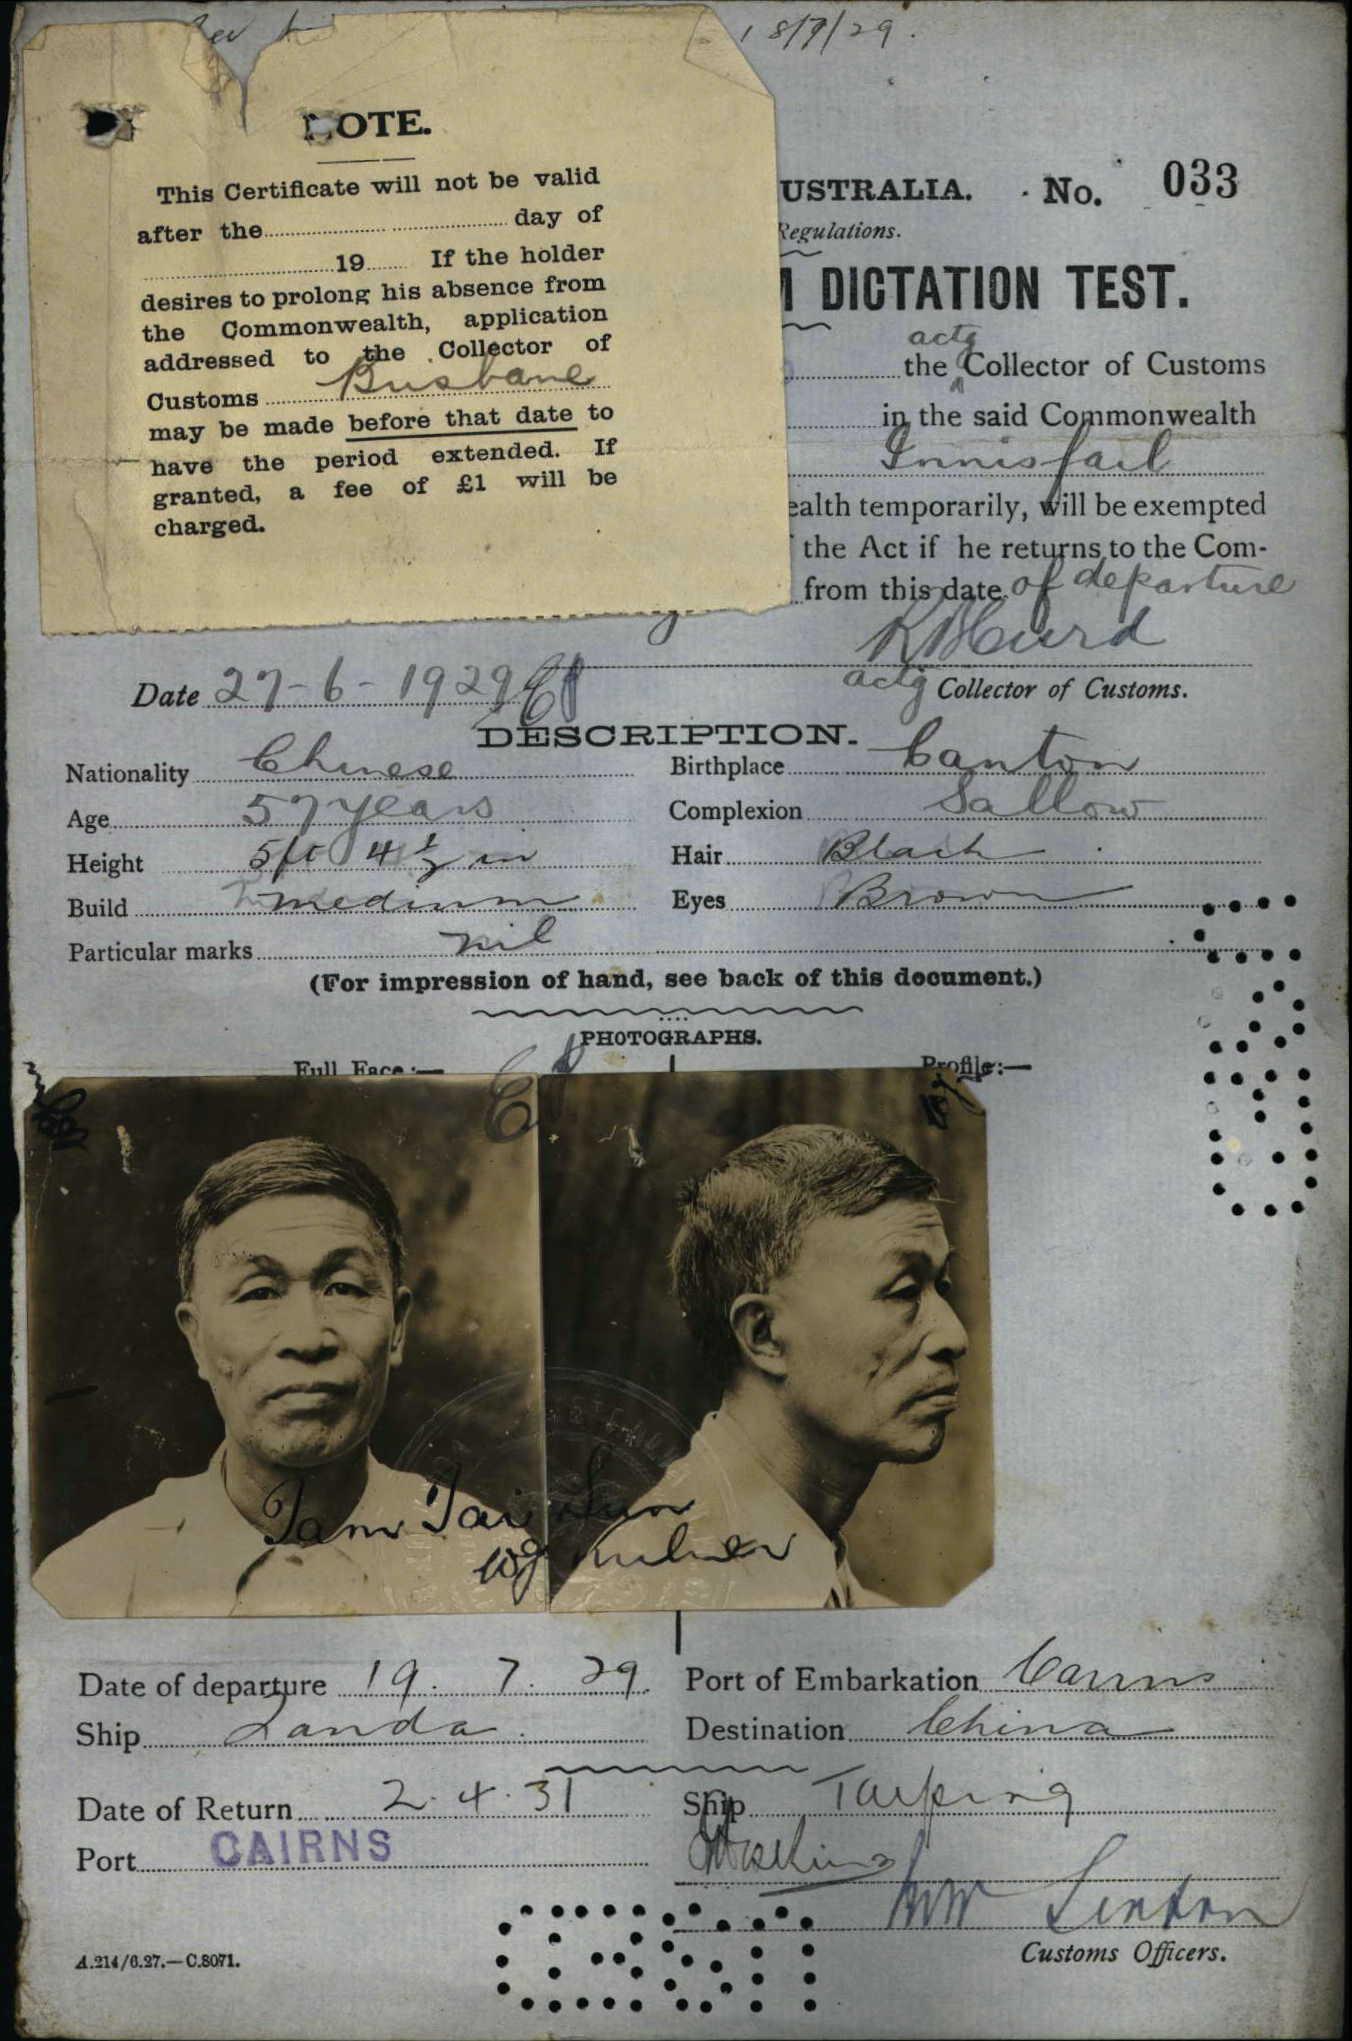 18/7/29.
NOTE.
This Certificate will not be valid
after the day of
19 If the holder
desires to prolong his absence from
the Commonwealth, application
addressed to the Collector of
Customs Brisbane
may be made before that date to
have the period extended. If
granted, a fee of £1 will be
charged.
USTRALIA. No. 033
Regulations.
M DICTATION TEST.
actg
the Collector of Customs
in the said Commonwealth
Innisfail
ealth temporarily, will be exempted
the Act if he returns to the Com-
from this date of departure
Date 27-6-1929
actg Collector of Customs.
DESCRIPTION.
Nationality Chinese Birthplace Canton
Age 57 years Complexion Sallow
Height 5ft 4½ in Hair Black
Build medium Eyes Brown
Particular marks nil
(For impression of hand, see back of this document.)
PHOTOGRAPHS.
Full Face:— Profile:—
Tam Tai Sun
Date of departure 19. 7. 29. Port of Embarkation Cairns
Ship Tanda Destination China
Date of Return 2.4.31 Ship Taiping
Port CAIRNS
Customs Officers.
A.214/6.27.—C.8071.